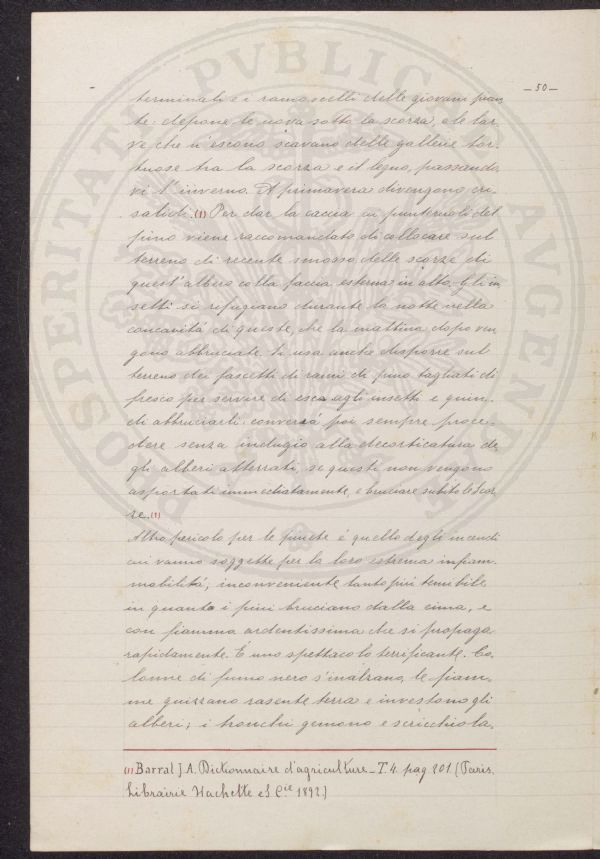 PROSPERITATI PVBLICAE AVGENDAE
- 50 -
terminali e i ramoscelli delle giovani pian
te: depone le uova sotto la scorza, e le lar
ve, che n'escono, scavano delle gallerie tor-
tuose tra la scorza e il legno, passando
vi l'inverno. A primavera divengono cri
salidi. (1) Per dar la caccia ai punteruoli del
pino viene raccomandato di collocare sul
terreno di recente smosso delle scorze di
quest'albero colla faccia esterna in alto. Gli in
setti si refugiano durante la notte nella
concavità di queste, che la mattina dopo ven
gono abbruciate. Si usa anche disporre sul
terreno dei fascetti di rami di pino tagliati di
fresco per servire di esca agli insetti e quin-
di abbruciarli: converrà poi sempre proce-
dere senza indugio alla decorticatura de
gli alberi atterrati, se questi non vengono
asportati immediatamente, e bruciare subito le scor
ze. (1)
Altro pericolo per le pinete è quello degli incendi
cui vanno soggette per la loro estrema infiam-
mabilità, inconveniente tanto più temibile
in quanto i pini bruciano dalla cima, e
con fiamma ardentissima che si propaga
rapidamente. È uno spettacolo terificante. Co
lonne di fumo nero s'inalzano, le fiam-
me guizzano rasente terra e investono gli
alberi; i tronchi gemono e scricchiola-
(1) Barral J. A. Dictionnaire d'agriculture - T. 4. pag 201. (Paris,
Librairie Hachette et C.ie 1892)